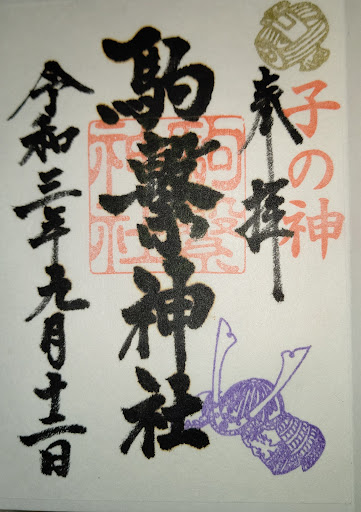 子の神
奉拝
駒繋神社
駒繋
神社
令和三年九月十二日